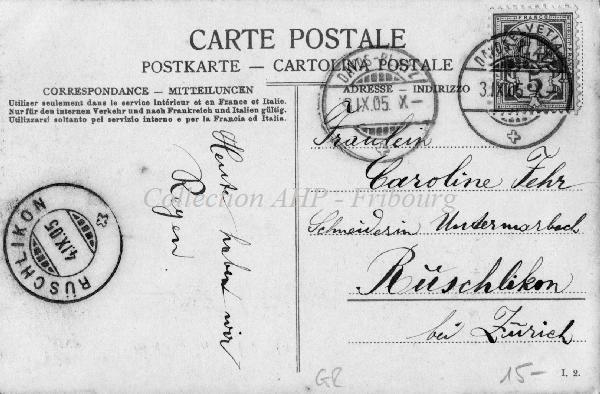 CARTE POSTALE
POSTKARTE — CARTOLINA POSTALE
CORRESPONDANCE — MITTEILUNGEN
Utilizer seulement dans le service intérieur et en France et Italie.
Nur für den internen Verkehr und nach Frankreich und Italien gültig.
Utilizzarsi soltanto pei servizio interno e per la Francia ed Italia.
Heut haben wir
Regen.
RÜSCHLIKON
4.IX.05
ADRESSE — INDIRIZZO
DAVOS-PLATZ
IX.05 X—
FRANCO
HELVETIA
5
3.IX.05
Fräulein
Caroline Fehr
Schneiderin Untermarbach
Rüschlikon
bei Zürich
Collection AHP - Fribourg
GR
15-
I. 2.